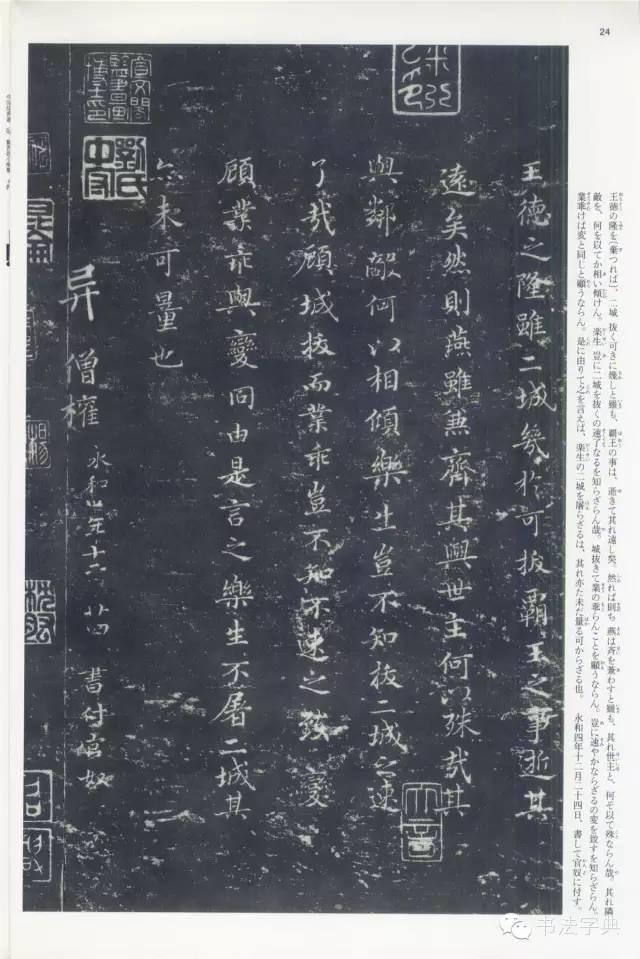 24
王徳の隆を(棄つれば)、二城 抜く可きに幾しと雖も、覇王の事は、逝きて其れ遠し矣。然れば則ち 燕は斉を兼わすと雖も、其れ世主と、何そ以て殊ならん哉。其れ隣
敵を、何を以てか相い傾けん。楽生 豈に二城を抜くの速了なるを知らざらん哉。城抜きて業の乖らんことを顧うならん。豈に速やかならざるの変を致すを知らざらん。
業乖けば変と同じと顧うならん。是に由りて之を言えば、楽生の二城を屠らざるは、其れ亦た未だ量る可からざる也。 永和四年十二月二十四日、書して官奴に付す。
王德之隆雖二城幾於可拔霸王之事逝其
遠矣然則燕雖兼齊其與世主何以殊哉其
與鄰敵何以相傾樂生豈不知拔二城之速
了哉顧城拔而業乖豈不知不速之致變
顧業乖與變同由是言之樂生不屠二城其
亦未可量也
异 僧權 永和四年十二月廿四 書付官奴
宣文閣
監書畫
博士印
书法字典